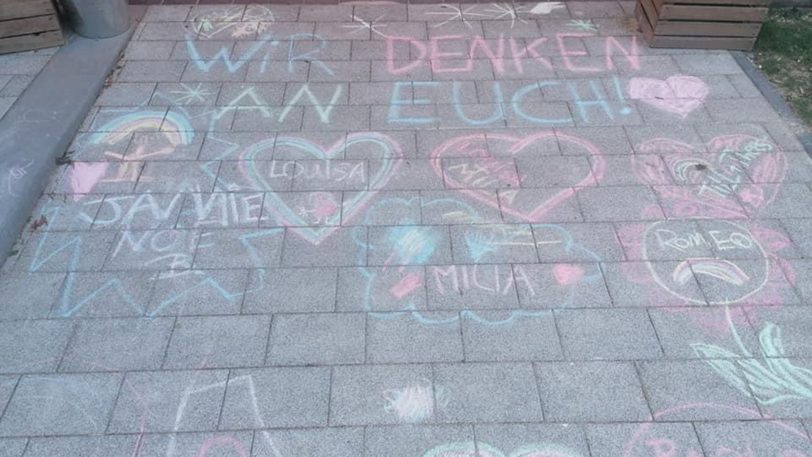 WiR DENKEN
AN EUCH!
LOUISA
MILA
JANNE
NOE
MILIA
ROMEO